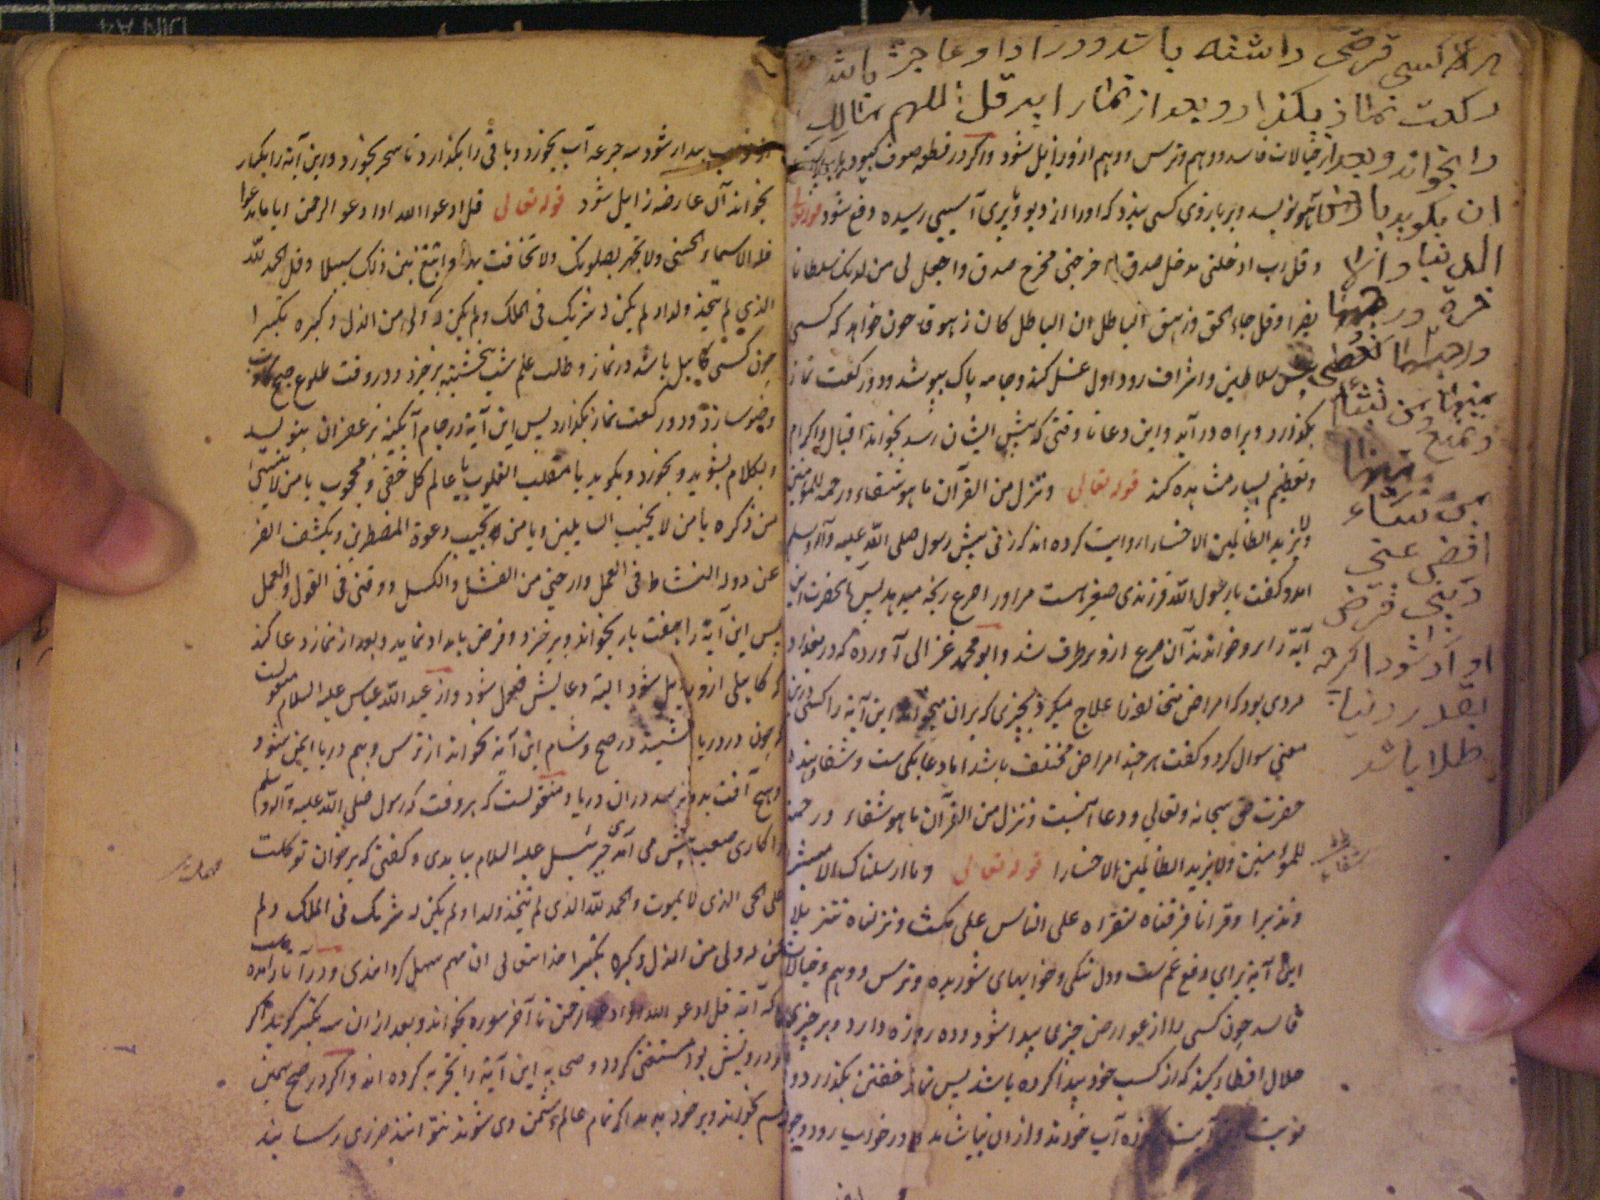 هر که کسی قرضی داشته باشد و در ادا او عاجز باشد
رکعت نماز بگذارد و بعد از نماز این قل اللهم مالک
را بخواند و بعد
ان بگوید یا رحمن
الدنیا و الاخرة
و رحیمهما
تعطی
من تشاء
و تمنع
من تشاء
اقضی عنی
دینی قرض
او ادا شود اگرچه
بقدر دنیا
طلا باشد
از خیالات فاسد و وهم و ترس و وهم ازو زایل شود و اگر در قطعه صوف کبود
نویسد و بر بازوی کسی بندد که او را از دیو و پری آسیبی رسیده دفع شود قوله تعالی
و قل رب ادخلنی مدخل صدق و اخرجنی مخرج صدق و اجعل لی من لدنک سلطانا
نصیرا و قل جاء الحق و زهق الباطل ان الباطل کان زهوقا چون خواهد که کسی
سلاطین و اشراف رود اول غسل کند و جامه پاک بپوشد و دو رکعت نماز
بگذارد و براه درآید و این دعا تا وقتی که پیش ایشان رسد بخواند اقبال و اکرام
و تعظیم بسیار مشاهده کند قوله تعالی و ننزل من القرآن ما هو شفاء و رحمة للمؤمنین
ولا یزید الظالمین الا خسارا روایت کرده اند که زنی پیش رسول صلی الله علیه و آله وسلم
آمد و گفت یا رسول الله فرزندی صغیر است مرا و را صرع رنجه میدهد پس آنحضرت این
آیة را برو خواندند آن صرع ازو برطرف شد و ابو محمد غزالی آورده که در بغداد
مردی بود که امراض مختلف را علاج میکرد بچیزی که بران میخواند این آیة را کسی درین
معنی سوال کرد و گفت هر چند امراض مختلف باشد اما دعا یکی ست و شفا دهنده
حضرت حق سبحانه و تعالی و دعا اینست و ننزل من القرآن ما هو شفاء و رحمة
للمؤمنین ولا یزید الظالمین الا خسارا قوله تعالی و ما ارسلناک الا مبشرا
و نذیرا و قرانا فرقناه لتقراه علی الناس علی مکث و نزلناه تنزیلا
این آیة برای دفع غم ست و دل تنگی و خوابهای شوریده و ترس و وهم و خیالات
فاسد چون کسی را از عوارض چیزی پیدا شود ده روزه دارد و بر چیزی
حلال افطار کند که از کسب خود پیدا کرده باشد پس نماز خفتن بگذارد و
نوبت این آیت بکوزه آب خواند و از ان بیاشامد و در خواب رود و چون
از خواب بیدار شود سه جرعه آب بخورد و باقی را بگذارد تا سحر بخورد و این آیة را یکبار
بخواند آن عارضه زایل شود قوله تعالی قل ادعوا الله او ادعوا الرحمن ایا ما تدعوا
فله الاسماء الحسنی ولا تجهر بصلوتک ولا تخافت بها و ابتغ بین ذلک سبیلا و قل الحمد لله
الذی لم یتخذ ولدا و لم یکن له شریک فی الملک و لم یکن له ولی من الذل و کبره تکبیرا
چون کسی کاهل باشد در نماز و طالب علم شب پنجشنبه برخیزد و در وقت طلوع صبح
وضو سازد و دو رکعت نماز بگذارد پس این آیة در جام آبگینه بزعفران بنویسد
و بکلام بشوید و بخورد و بگوید یا مقلب القلوب یا عالم کل خفی و محجوب یا من لا ینسی
من ذکره یا من لا یخیب السایلین و یا من یجیب دعوة المضطرین و یکشف الضر
عن دوله النشاط فی العمل وارحنی من الفشل و الکسل و وفقنی فی القول و العمل
پس این آیة را هفت بار بخواند و برخیزد و فرض بامداد نماید و بعد از نماز دعا کند
که کاهلی ازو زایل شود البته دعایش قبول شود و از عبد الله عباس علیه السلام منقولست
که چون در دریا نشیند در صبح و شام این آیة بخواند از ترس و بیم دریا ایمن شود
و هیچ آفت بدو نرسد در ان دریا و منقولست که هر وقت که رسول صلی الله علیه و آله وسلم
را کاری صعب پیش می آمدی جبرئیل علیه السلام بیامدی و گفتی که برخوان توکلت
علی الحی الذی لا یموت و الحمد لله الذی لم یتخذ ولدا و لم یکن له شریک فی الملک و لم
یکن له ولی من الذل و کبره تکبیرا خدایتعالی ان مهم سهل گرداندی و در آثار آمده
که آیة قل ادعو الله او ادعو الرحمن تا آخر سوره بخواند و بعد از ان سه تکبیر گوید اگر
درویش بود مستغنی گردد و صحابه این آیة را تجربه کرده اند و اگر در صبح همین
قسم بخواند و بر خود بدمد اگر تمام عالم دشمن وی شوند نتوانند ضرری رسانیند